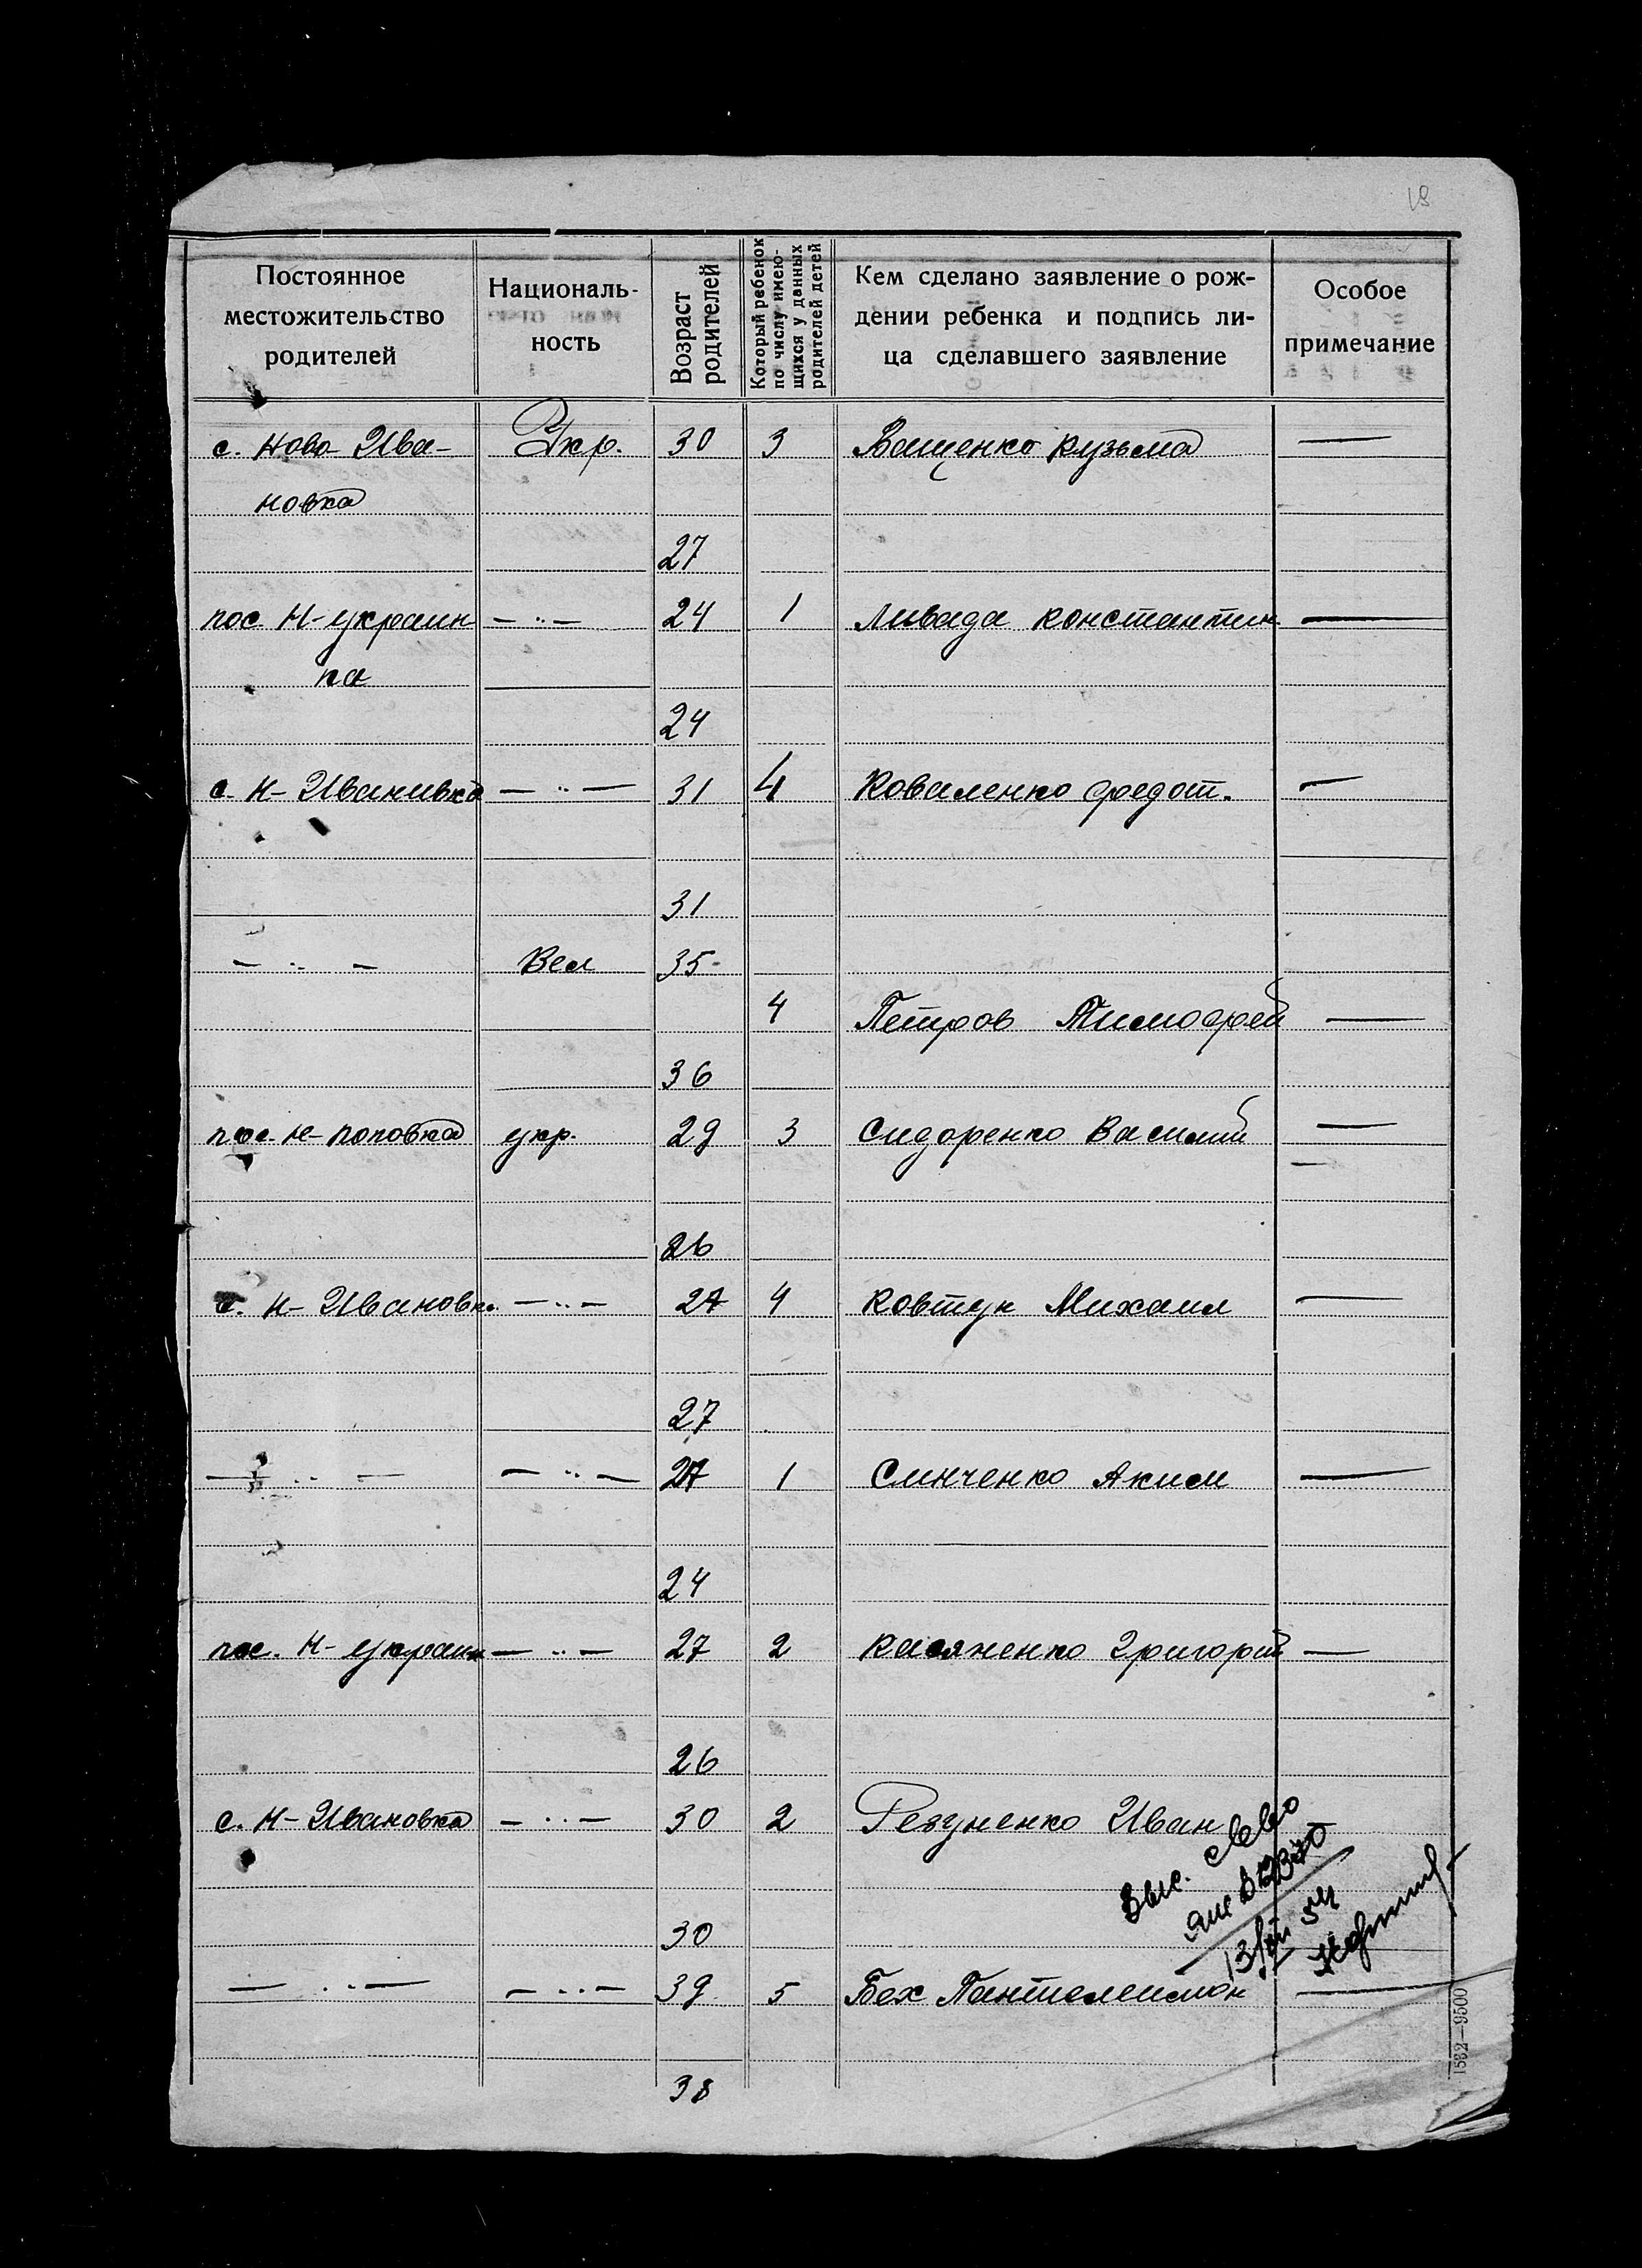 18
Постоянное
местожительство
родителей
Националь-
ность
Возраст
родителей
Который ребенок
по числу имею-
щихся у данных
родителей детей
Кем сделано заявление о рож-
дении ребенка и подпись ли-
ца сделавшего заявление
Особое
примечание
с. Ново-Ива- Укр. 30 3 Ващенко Кузьма —
новка
27
пос. Н-Украин — " — 24 1 Ливада Константин —
ка
24
с. Н-Ивановка — " — 31 4 Коваленко Федот. —
31
— " — Вел 35
4 Петров Тимофей —
36
пос. Н-Поповка укр. 29 3 Сидоренко Василий —
26
с. Н-Ивановка — " — 27 4 Ковтун Михаил —
27
— " — — " — 27 1 Синченко Аким —
24
пос. Н-Украин — " — 27 2 Касяненко Григорий —
26
с. Н-Ивановка — " — 30 2 Резуненко Иван
Выс. св-во
13/VII 54
30
— " — — " — 39 5 Бех Пантелеимон —
38
1532—9500